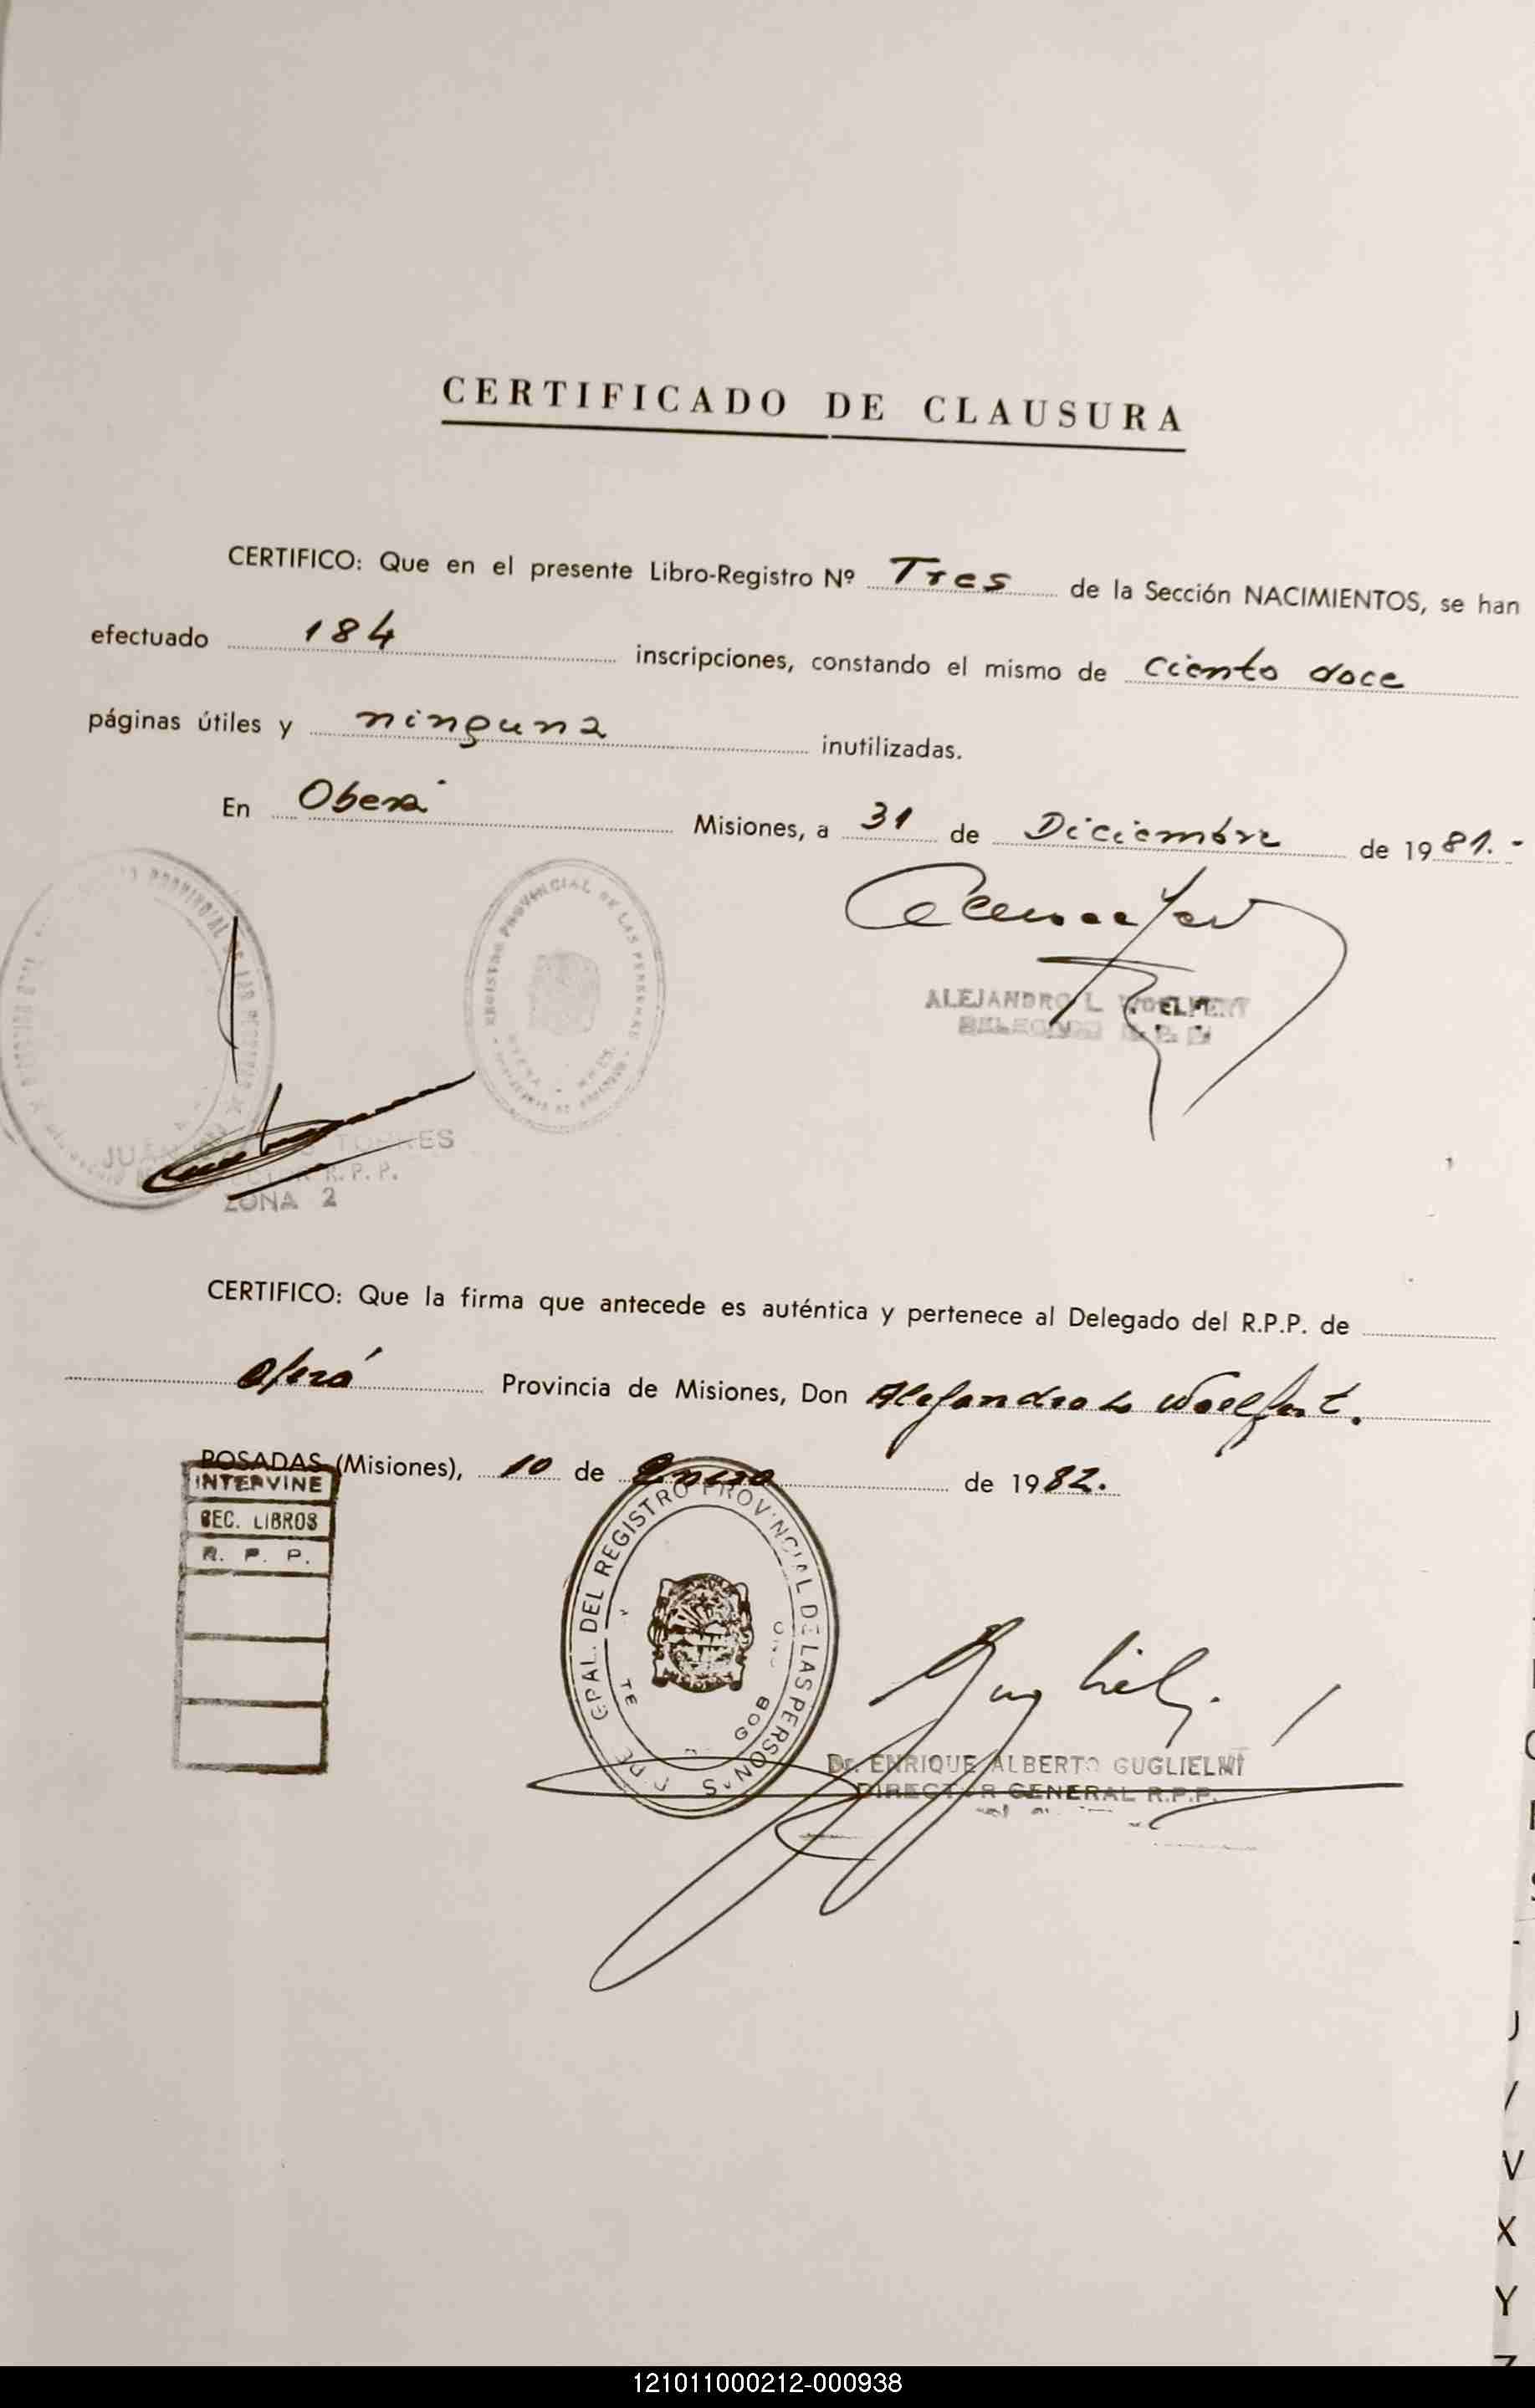 CERTIFICADO DE CLAUSURA
CERTIFICO: Que en el presente Libro-Registro Nº Tres de la Sección NACIMIENTOS, se han
efectuado 184 inscripciones, constando el mismo de ciento doce
páginas útiles y ninguna inutilizadas.
En Oberá Misiones, a 31 de Diciembre de 1981.-
REGISTRO PROVINCIAL DE LAS PERSONAS
ALEJANDRO L. WOELFERT
DELEGADO R. P. P.
TORRES
R. P. P.
ZONA 2
CERTIFICO: Que la firma que antecede es auténtica y pertenece al Delegado del R.P.P. de
Oberá Provincia de Misiones, Don Alejandro L. Woelfert.
POSADAS (Misiones), 10 de Enero de 1982.
INTERVINE
SEC. LIBROS
R. P. P.
GRAL. DEL REGISTRO PROVINCIAL DE LAS PERSONAS
Dr. ENRIQUE ALBERTO GUGLIELMI
DIRECTOR GENERAL R.P.P.
J
V
X
Y
Z
121011000212-000938